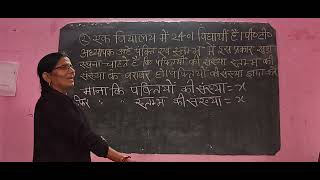 एक विद्यालय में 2401 विद्यार्थी हैं। पी०टी०
अध्यापक उन्हें पंक्ति एवं स्तम्भ में इस प्रकार खड़ा
रखना चाहते हैं कि पंक्तियों की संख्या स्तम्भ की
संख्या के बराबर हो। पंक्तियों की संख्या ज्ञात
माना कि पंक्तियों की संख्या = x
स्तम्भ की संख्या = x